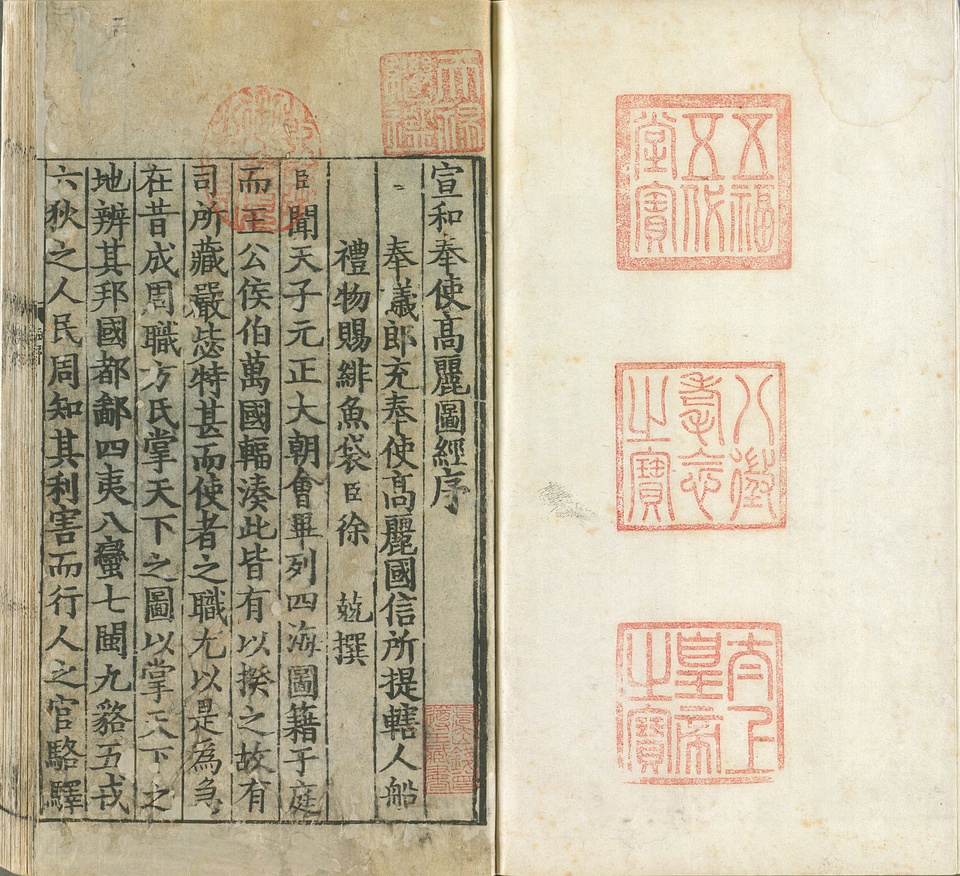 五福
五代
堂寶
八徵
耄念
之寶
太上
皇帝
之寶
天祿
繼鑑
宣和奉使高麗圖經序
奉議郎充奉使高麗國信所提轄人船
禮物賜緋魚袋臣徐 兢撰
臣聞天子元正大朝會畢列四海圖籍于庭
而王公侯伯萬國輻湊此皆有以揆之故有
司所藏嚴毖特甚而使者之職尤以是為急
在昔成周職方氏掌天下之圖以掌天下之
地辨其邦國都鄙四夷八蠻七閩九貉五戎
六狄之人民周知其利害而行人之官駱驛